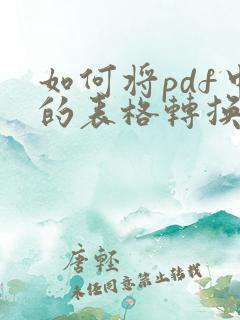 如何將pdf中
的表格轉換
唐輕
未经同意禁止转载